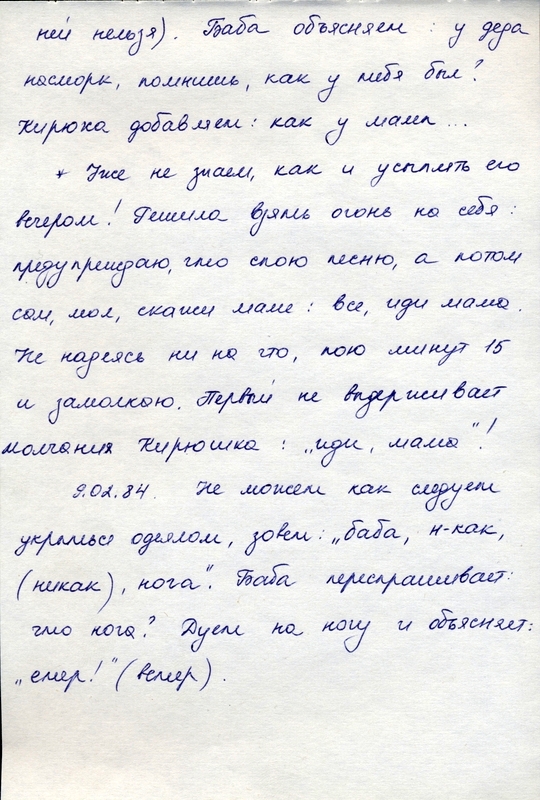 ней нельзя). Баба объясняет: у деда
насморк, помнишь, как у тебя был?
Кирюха добавляет: как у мамы...
* Уже не знаем, как и усыплять его
вечером! Решила взять огонь на себя:
предупреждаю, что спою песню, а потом
сам, мол, скажи маме: все, иди мама.
Не надеясь ни на что, пою минут 15
и замолкаю. Первый не выдерживает
молчания Кирюшка: „иди, мама"!
9.02.84. Не может как следует
укрыться одеялом, зовет: „баба, н-как,
(никак), нога". Баба переспрашивает:
что нога? Дует на ногу и объясняет:
„етер!" (ветер).